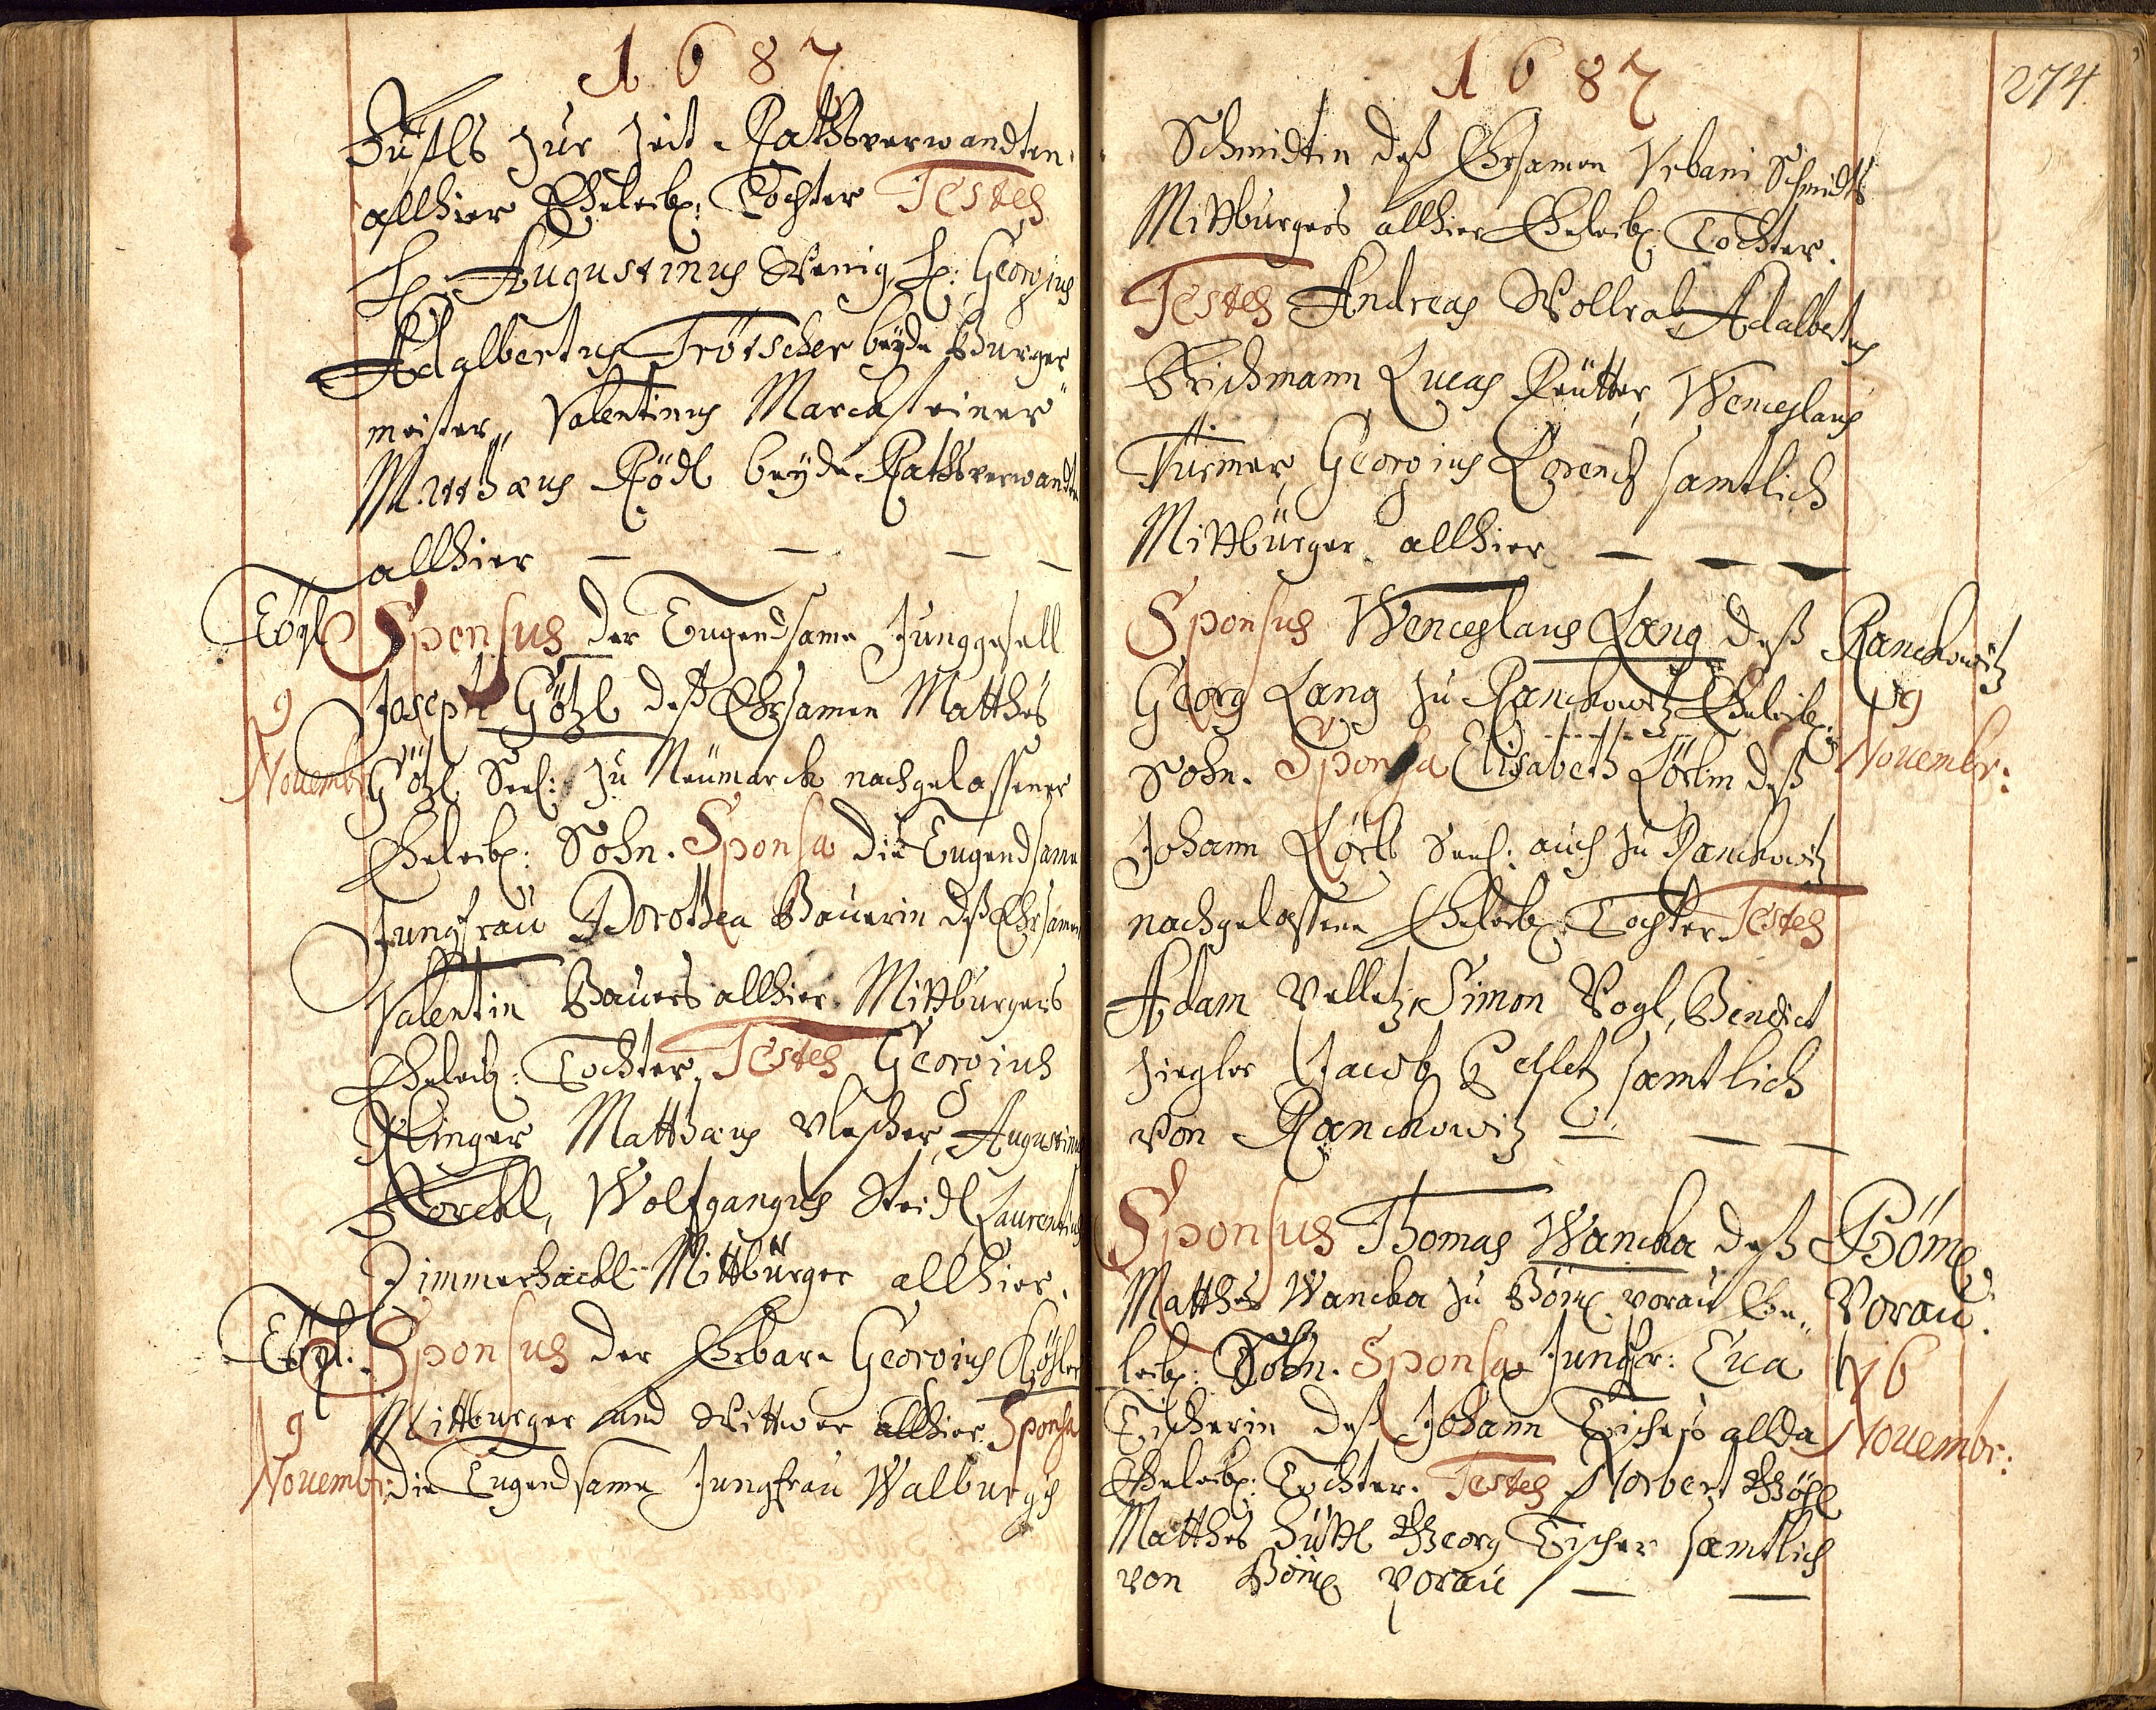 1687
zur Zeit Rathsverwandten
allhier Eheleibl: Tochter Testes
H: Augustinus Wenig, H: Georgius
Adalbertus Trötscher beÿde Burger
meister, Valentinus Marcksteiner
Matthæus Rödl beÿde Rathsverwandte
allhier — — — —
Töpl Sponsus der Tugendsame Junggesell
Joseph Götzl deß Ehrsamen Matthes
9
Novembr: Götzl Seel: zu Neümarck nachgelassener
Eheleibl: Sohn. Sponsa die Tugendsame
Jungfrau Dorothea Bauerin deß Ehrsamen
Valentin Bauers allhier Mittburgers
Eheleibl: Tochter. Testes Georgius
Klinger Matthæus Augustinus
Wolfgangus Steidl Laurentius
Zimmerhackl Mittbürger allhier.
Töpl: Sponsus der Ehrbare Georgius
9 Mittburger und Wittwer allhier Sponsa
Novembr: die Tugendsame Jungfrau Walburgis
1687
274
Schmidtin deß Ehrsamen Urbani Schmidts
Mittburgers allhier Eheleibl: Tochter.
Testes Andreas Wollrab Adalbertus
Lucas Reütter, Wenceslaus
Türmer, Georgius Lorentz samtlich
Mittbürger allhier — — —
Sponsus Wenceslaus Lang deß Ranckowitz
Georg Lang zu Ranckowitz Eheleibl: 9
Sohn. Sponsa Elisabeth deß Novembr:
Johann Seel: auch zu Ranckowitz
nachgelassene Eheleibl: Tochter Testes
Adam Simon Vogl, Benedict
Ziegler Jacob samtlich
von Ranckowitz — — —
Sponsus Thomas Wancka deß Böm.
Matthes Wancka zu Böm. Vorau Ehe- Vorau.
leibl: Sohn. Sponsa Jungfr: Eva 16
Tischerin deß Johann Tischers allda Novembr:
Eheleibl: Tochter. Testes Norbert
Matthes Georg Tischer samtlich
von Böm. Vorau — —